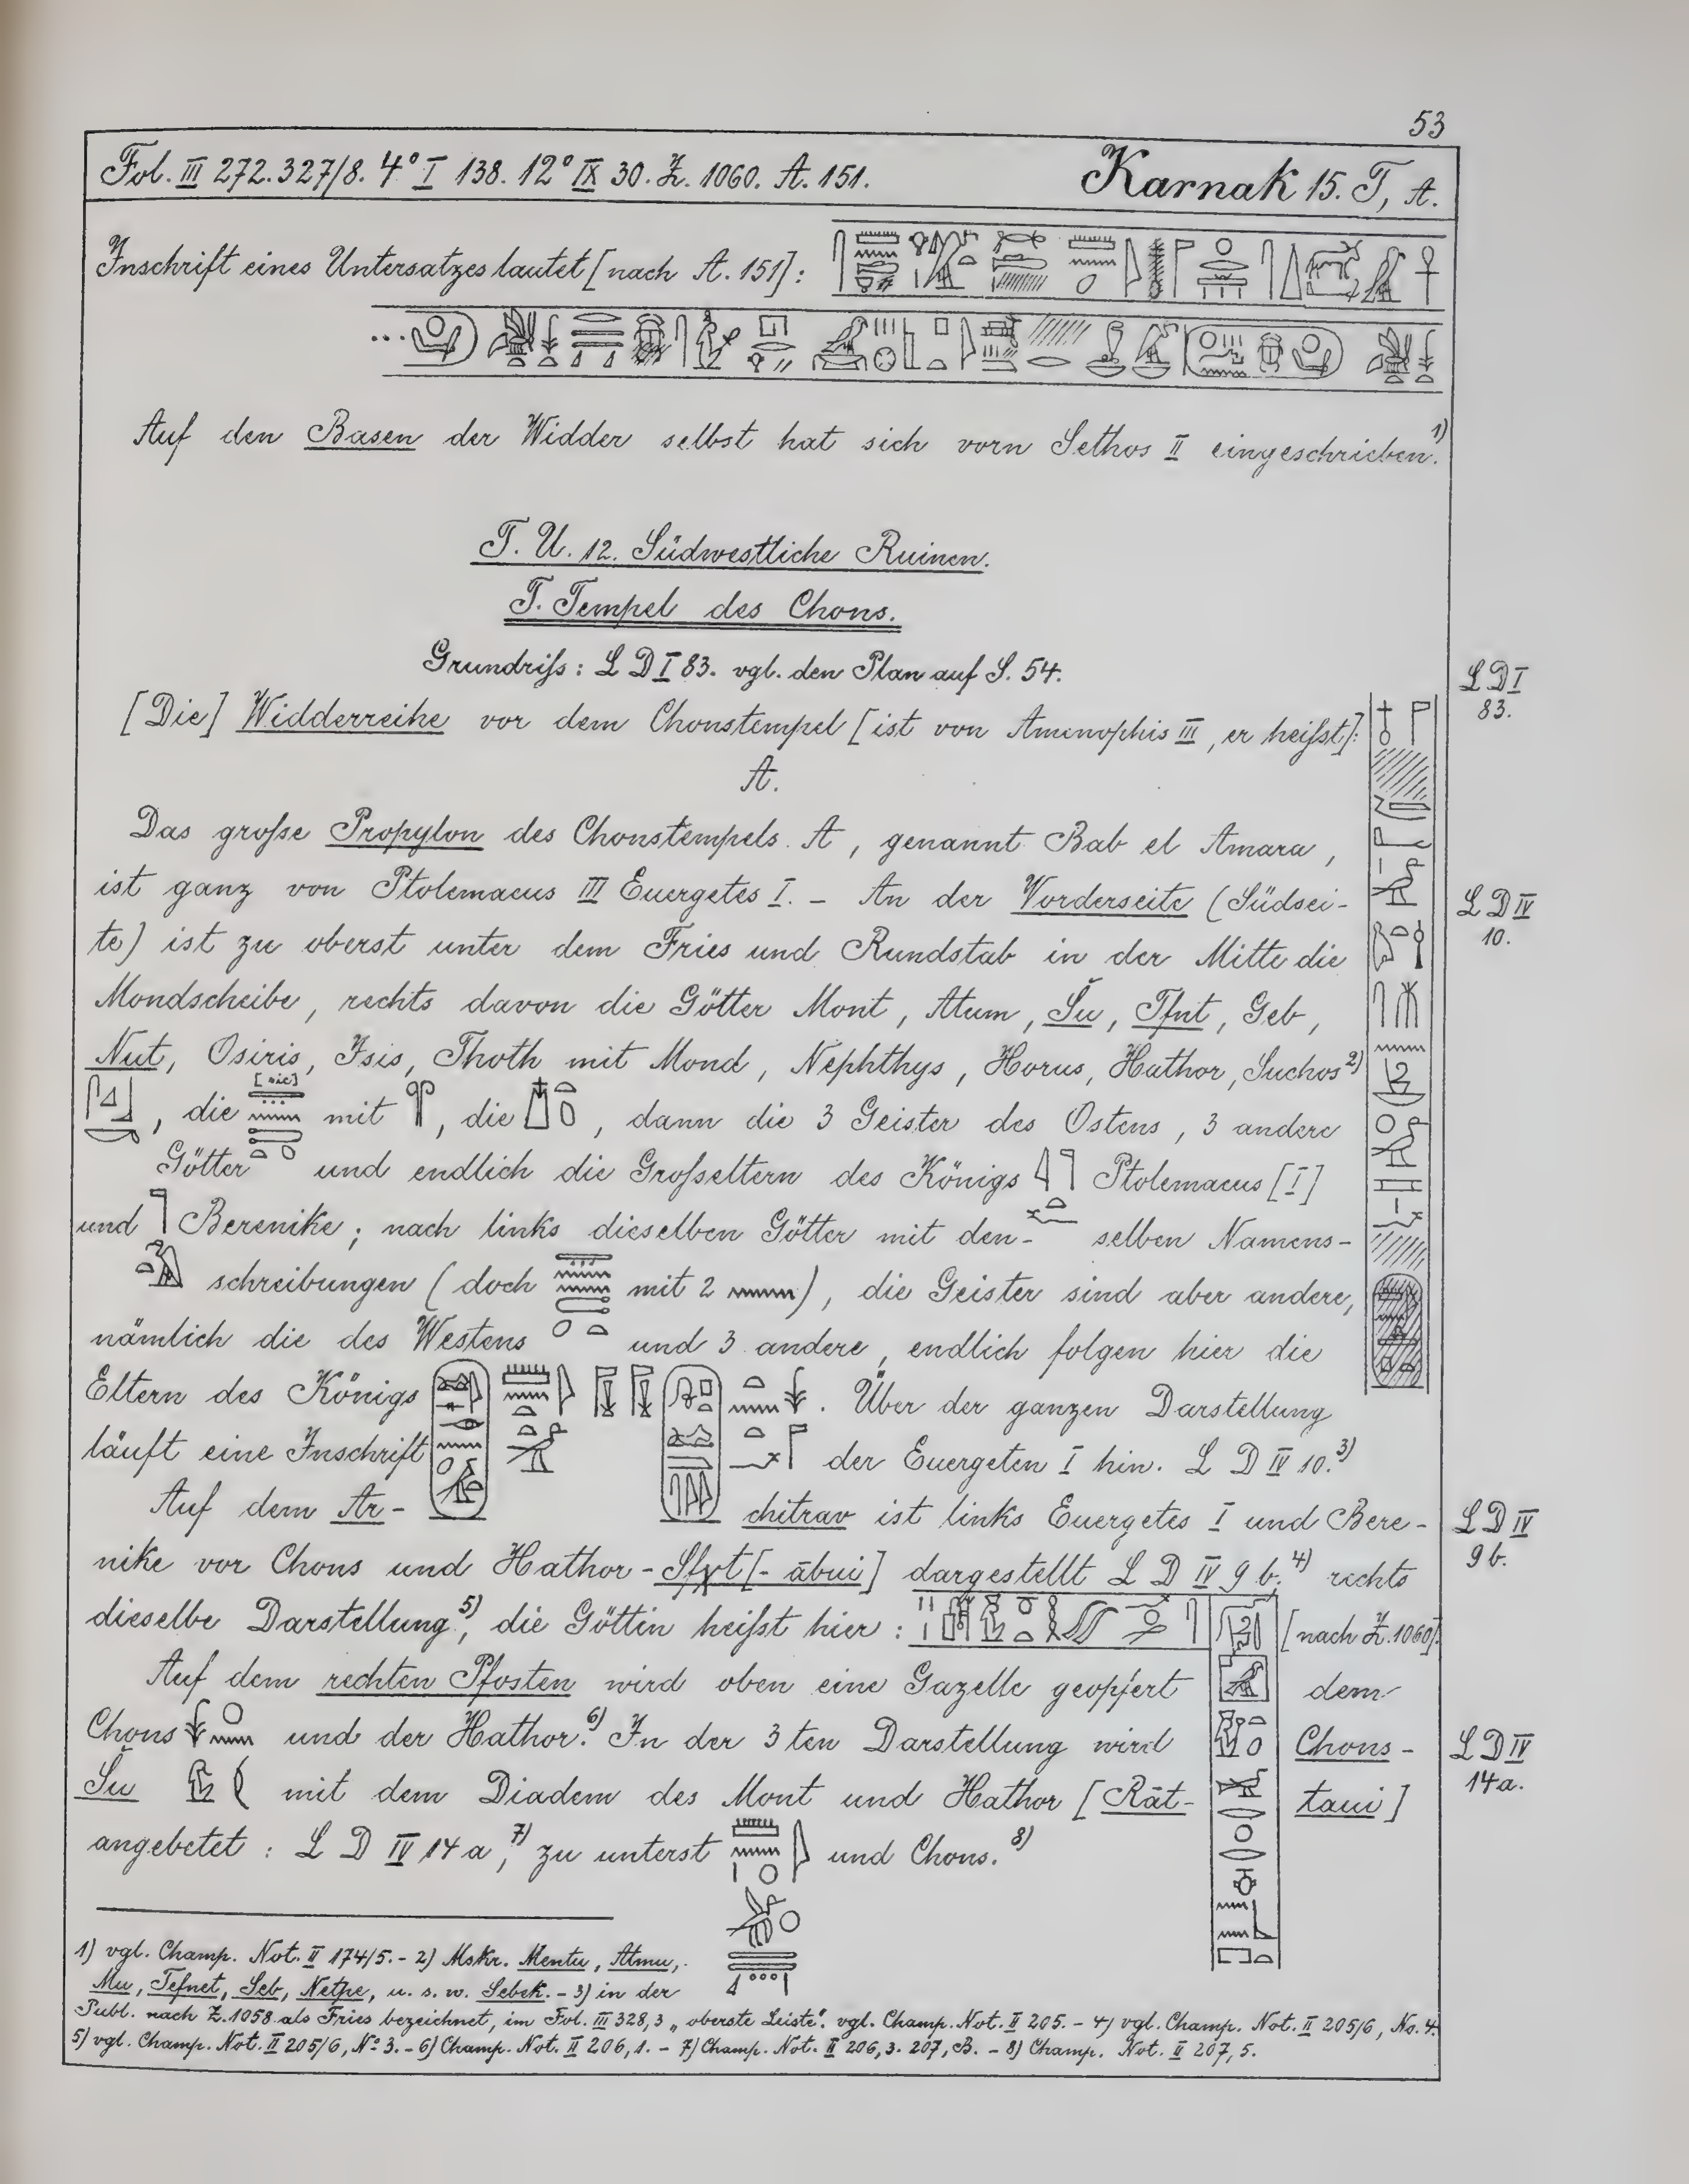 53
Fol. III 272. 327/8. 4° I 138. 12° IX 30. Z. 1060. A. 151.
Karnak 15. T, A.
Inschrift eines Untersatzes lautet [nach A. 151]:
Auf den Basen der Widder selbst hat sich vorn Sethos II eingeschrieben.1)
T. U. 12. Südwestliche Ruinen.
T. Tempel des Chons.
Grundriſs: L D I 83. vgl. den Plan auf S. 54.
L D I
83.
[Die] Widderreihe vor dem Chonstempel [ist von Amenophis III, er heiſst]:
A.
Das groſse Propylon des Chonstempels A, genannt Bab el Amara,
ist ganz von Ptolemaeus III Euergetes I. – An der Vorderseite (Südsei-
L D IV
10.
te) ist zu oberst unter dem Fries und Rundstab in der Mitte die
Mondscheibe, rechts davon die Götter Mont, Atum, Šu, Tfnt, Geb,
Nut, Osiris, Isis, Thoth mit Mond, Nephthys, Horus, Hathor, Suchos2)
[sic]
, die mit , die , dann die 3 Geister des Ostens, 3 andere
Götter und endlich die Groſseltern des Königs Ptolemaeus [I]
und Berenike; nach links dieselben Götter mit den- selben Namens-
schreibungen (doch mit 2 ), die Geister sind aber andere,
nämlich die des Westens und 3 andere, endlich folgen hier die
Eltern des Königs . Über der ganzen Darstellung
läuft eine Inschrift der Euergeten I hin. L D IV 10.3)
Auf dem Ar- chitrav ist links Euergetes I und Bere-
L D IV
9 b.
nike vor Chons und Hathor-Sfχt[-ābui] dargestellt L D IV 9 b.4) rechts
dieselbe Darstellung5), die Göttin heiſst hier: [nach Z. 1060].
Auf dem rechten Pfosten wird oben eine Gazelle geopfert dem
Chons und der Hathor.6) In der 3ten Darstellung wird Chons-
L D IV
14 a.
Šu mit dem Diadem des Mont und Hathor [Rāt- taui]
angebetet: L D IV 14 a,7) zu unterst und Chons.8)
1) vgl. Champ. Not. II 174/5. – 2) Mskr. Mentu, Atmu,
Mu, Tefnet, Seb, Netpe, u. s. w. Sebek. – 3) in der
Publ. nach Z. 1058 als Fries bezeichnet, im Fol. III 328,3 „oberste Leiste". vgl. Champ. Not. II 205. – 4) vgl. Champ. Not. II 205/6, No. 4.
5) vgl. Champ. Not. II 205/6, No 3. – 6) Champ. Not. II 206, 1. – 7) Champ. Not. II 206, 3. 207, B. – 8) Champ. Not. II 207, 5.